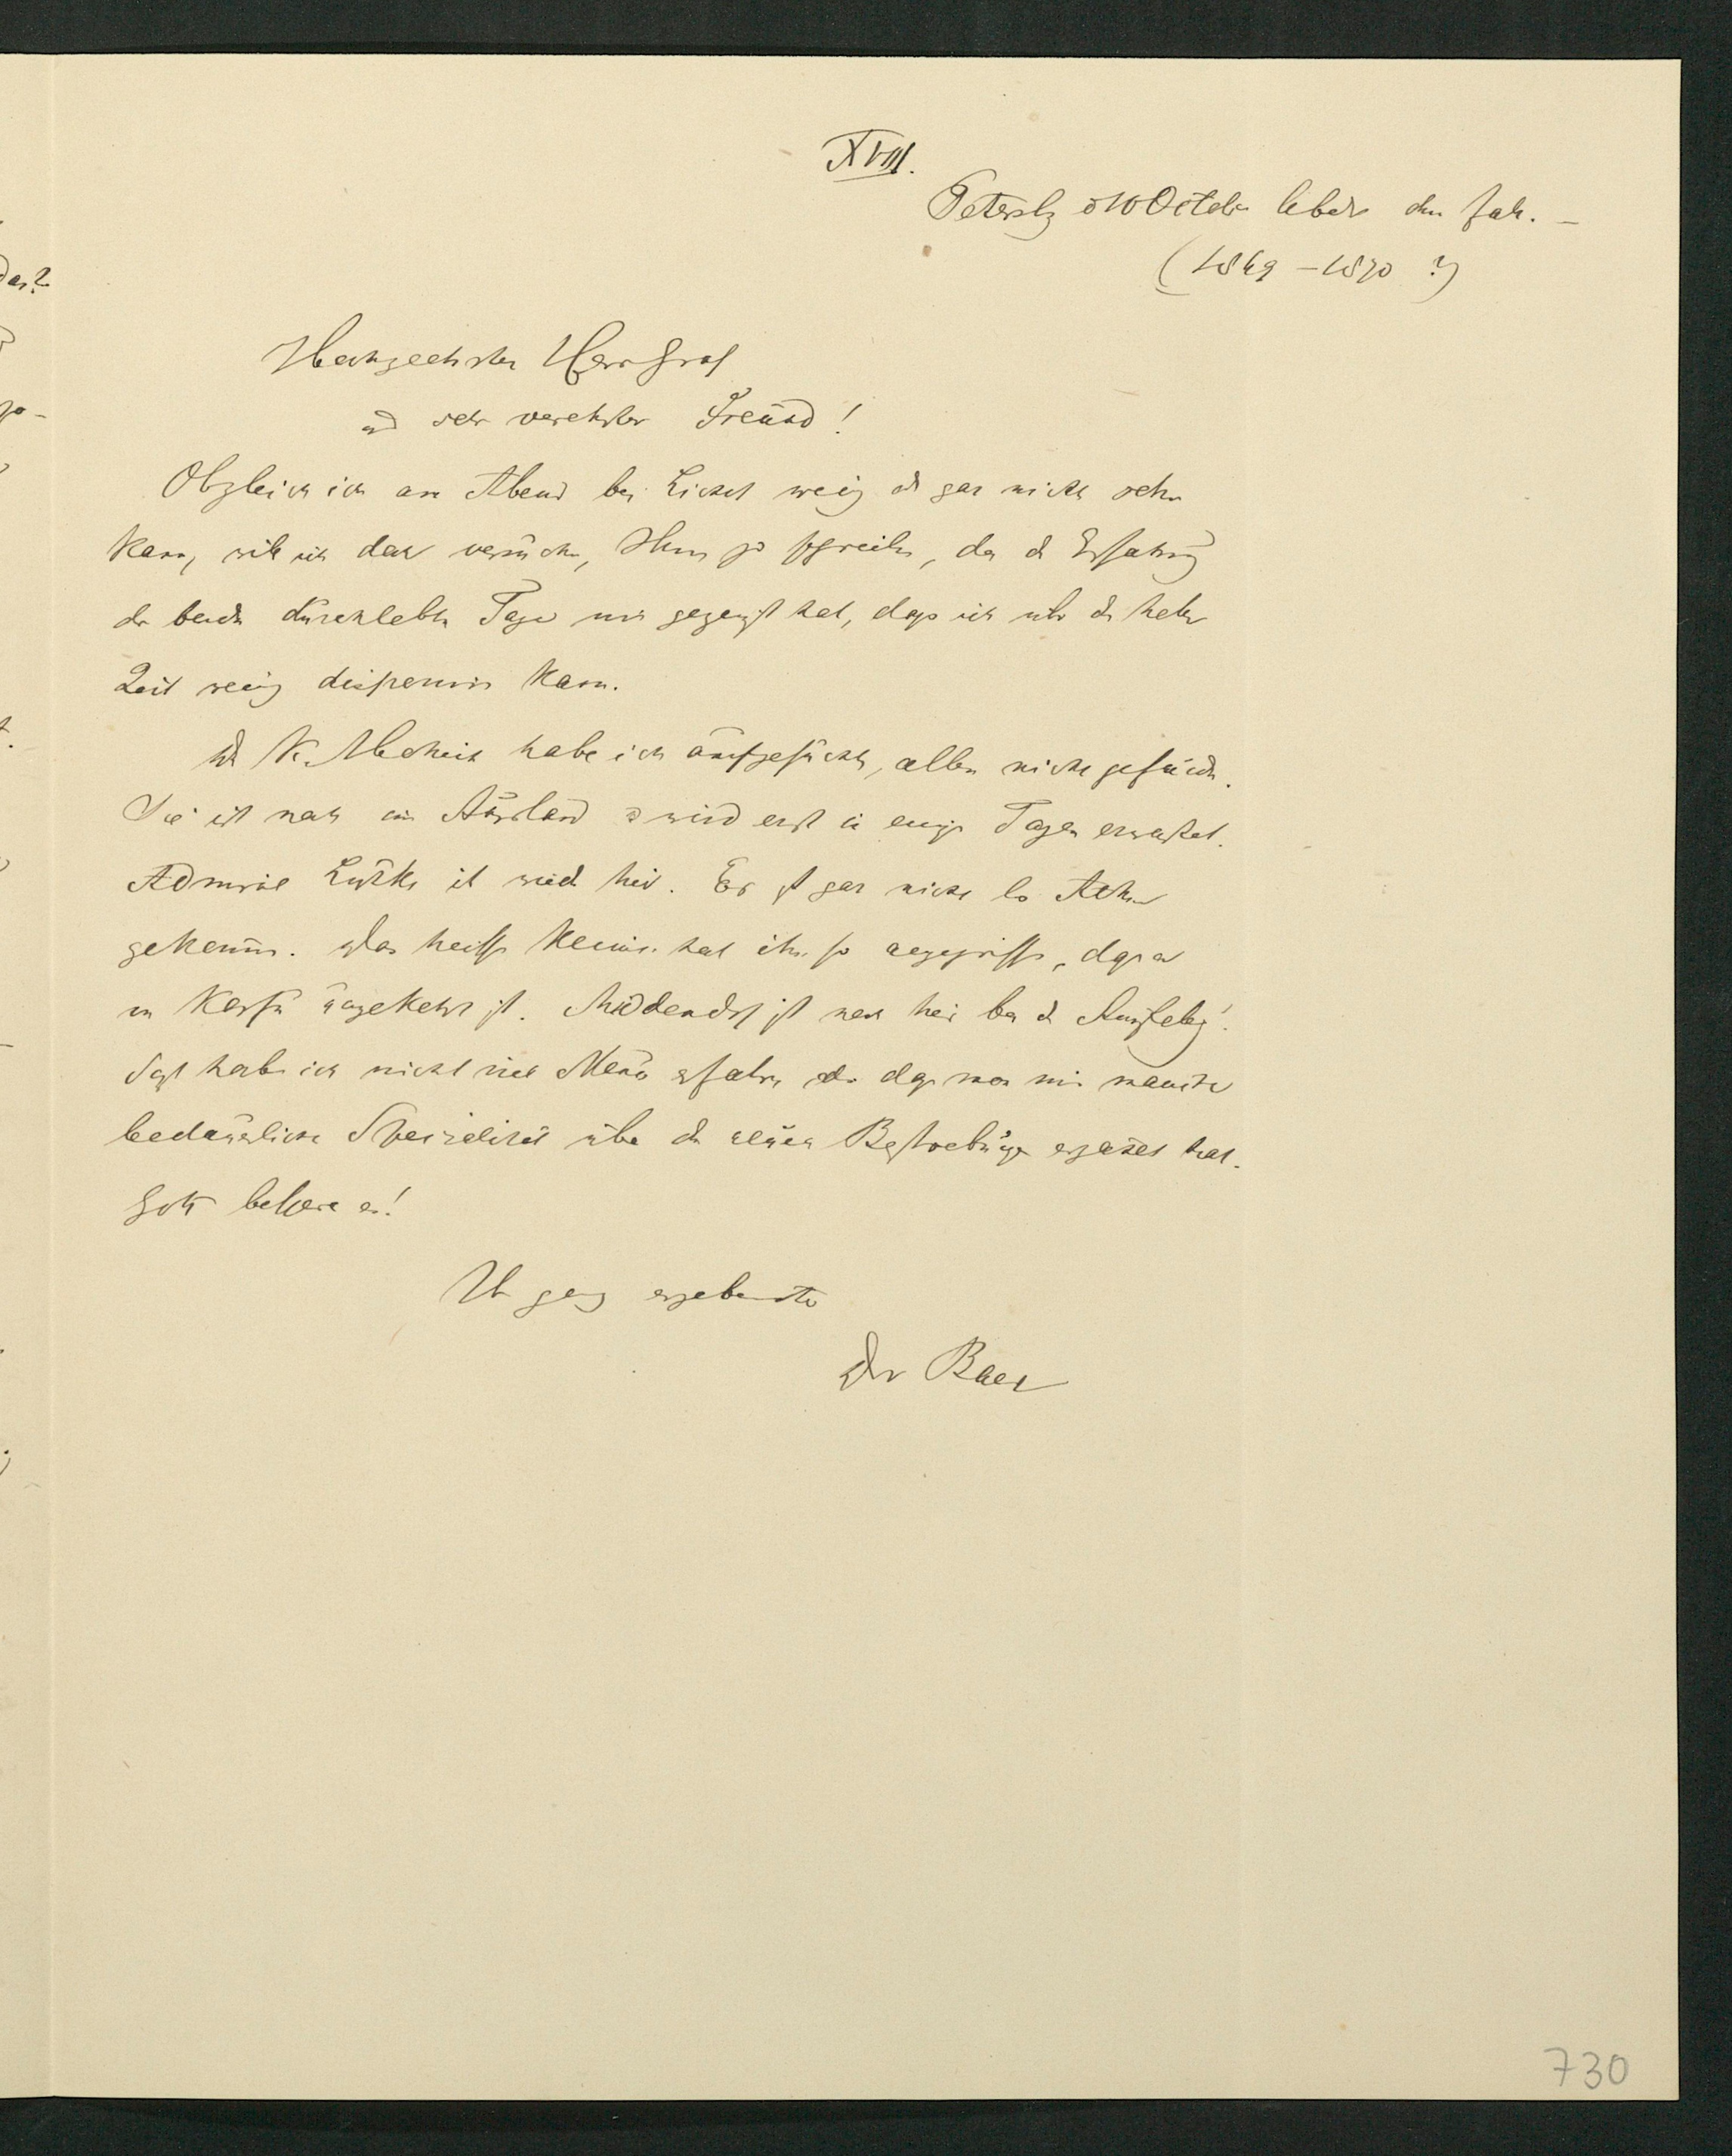 XVIII.
Petersbg d 10 October leider ohne Jah. —
(1869 – 1870 ?)
Hochgeehrter Herr Graf
und sehr verehrter Freund!
Obgleich ich am Abend bei Licht wenig od gar nicht sehen
kann, will ich doch versuchen, Ihnen zu schreiben, da die Erfahrung
der beiden durchlebten Tage mir gezeigt hat, dass ich über die helle
Zeit wenig disponiren kann.
habe ich aufgesucht, allein nicht gefunden.
Sie ist noch im Ausland u wird erst in einigen Tagen erwartet.
Admiral Lütke ist wieder hier. Er ist gar nicht bis Athen
gekommen. Das heisse Klima hat ihn so angegriffen, dass er
in Korfu umgekehrt ist. Middendorf ist noch hier bei der
Sonst habe ich nicht viel Neues erfahren als dass man mir manche
bedauerliche Specialität über die neuen Bestrebungen erzählt hat.
Gott bessere es!
Ihr ganz ergebenster
Dr Baer
730